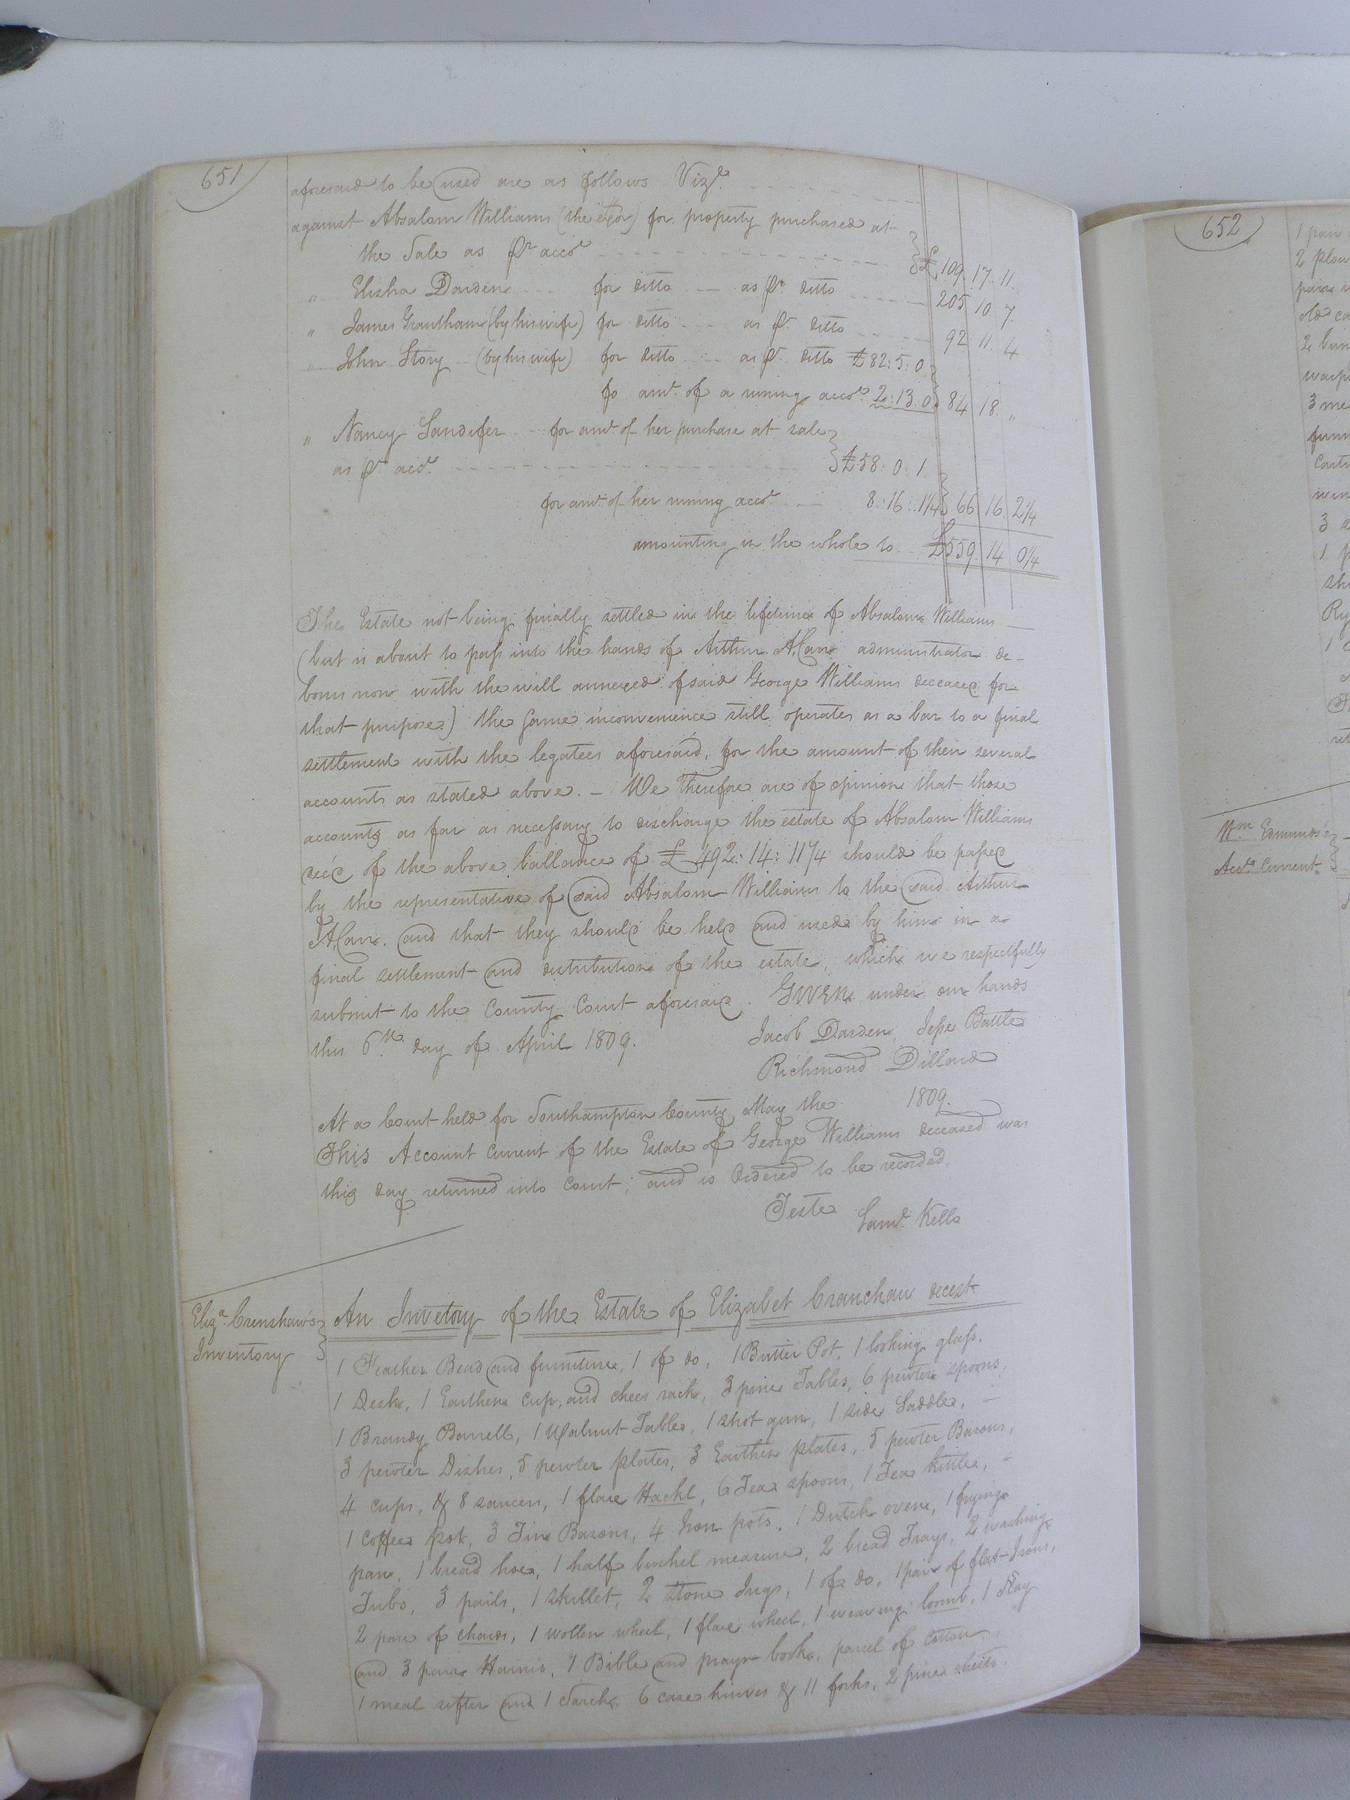 651
aforesaid to be used are as follows Vizt.
against Absalom Williams (the exor) for property purchased at
the Sale as Pr accot } £ 109 17 11.
" Elisha Darden for ditto — as Pr ditto 205 10 7
" James Grantham (by his wife) for ditto as Pr ditto 92 11 4
" John Story (by his wife) for ditto as Pr ditto £82:5:0
fo amt. of a runing accot. 2:13.0 } 84 18 "
" Nancy Sandifer for amt of her purchase at sale
as Pr acct. } £58:0:1
for amt. of her runing accot 8:16:1¼ } 66 16 2¼
amounting in the whole to £559 14 0¼
The Estate not being finally settled in the lifetime of Absalom Williams —
(but is about to pass into the hands of Arthur A. Carr administrator de-
bonis now with the will annexed of said George Williams deceased for
that purpose) the same inconvenience still operates as a bar to a final
settlement with the legatees aforesaid, for the amount of their several
accounts as stated above. — We therefore are of opinion that those
accounts as far as necessary to discharge the estate of Absalom William
decd of the above ballance of £492:14:11¼ should be passed
by the representative of said Absalom Williams to the said Arthur
A Carr. and that they should be held and used by him in a
final settlement and distribution of the estate, which we respectfully
submit to the County Court aforesaid. GIVEN under our hands
this 6th day of April 1809.
Jacob Darden Jesse Battle
Richmond Dillard
At a Court held for Southampton County May the 1809.
This Account Current of the Estate of George Williams deceased was
this day returned into Court; and is Ordered to be recorded.
Teste Saml. Kello
Eliza. Crenshaw's }
Inventory
An Invetory of the Estate of Elizabet Cranchaw decest
1 Feather Bead and furniture, 1 of do, 1 Butter Pot, 1 looking glass,
1 Desk, 1 Earthen Cup, and chees rack, 3 pine Tables, 6 pewter spoons,
1 Brandy Barrell, 1 Walnut Table, 1 shot gun, 1 side Saddle, —
3 pewter Dishes, 5 pewter plates, 3 Earthen plates, 5 pewter Basons,
4 cups, & 8 saucers, 1 flax Hackl, 6 Tea spoons, 1 Tea kittle, —
1 Coffee pot, 3 Tin Basons, 4 Iron pots, 1 Dutch oven, 1 frying
pan, 1 bread hoe, 1 half bushel measure, 2 bread Trays, 2 washing
Tubs, 3 pails, 1 skillet, 2 stone Jugs, 1 of do, 1 pair of flat Irons,
2 pare of chairs, 1 wollen wheel, 1 flax wheel, 1 weaving loomb, 1 Slay
and 3 pare Harnis, 1 Bible and prayr book, parcel of Cotton
1 meal sifter and 1 Sarch, 6 case knives & 11 forks, 2 pine shells
652
1 pair
2 plow
old
3 me
3
1
1
Wm. Edmunds's }
Acct. Current.